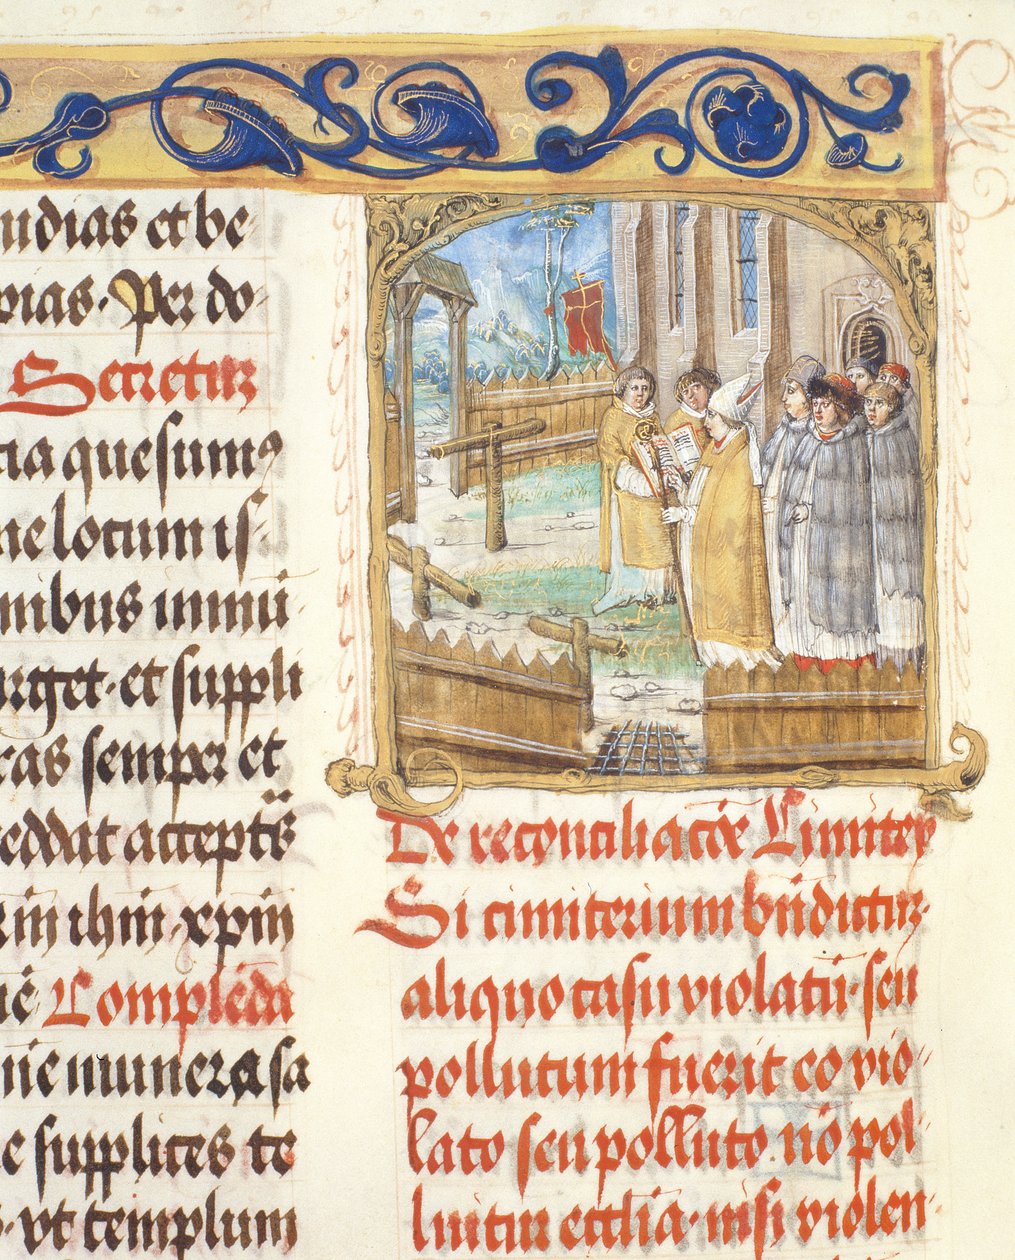 et be
Per do-
Secretuz
quesumꝰ
locum is-
nibus inmū-
et suppli
semper et
eddat acceptū
in ihm̄ xpm̄
Complēda
munera sa
supplices te
vt templum
De reconciliacōe Cimitery
Si cimiterium bn̄dictuz
aliquo casu violatū. seu
pollutum fuerit eo vio-
lato seu polluto nō pol-
luitur ecclīa. nisi violen-